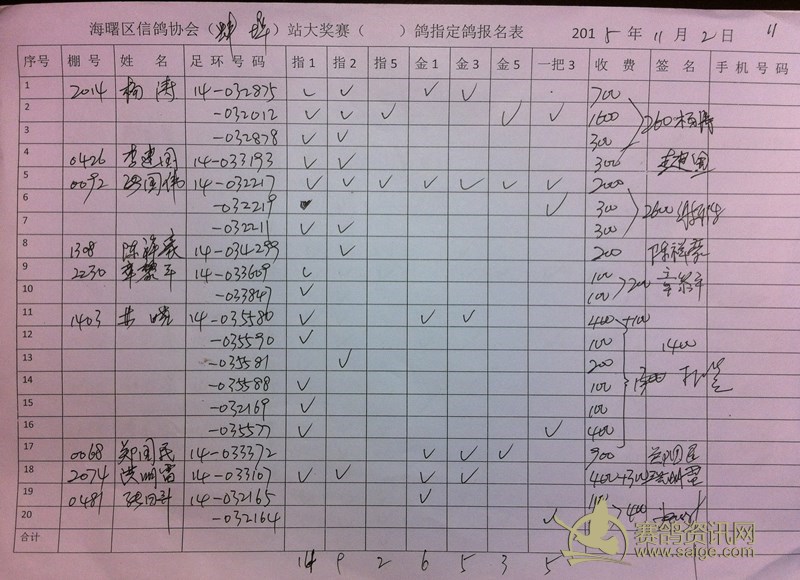 海曙区信鸽协会（ ）站大奖赛（ ）鸽指定鸽报名表 2015年11月2日 11
序号 棚号 姓名 足环号码 指1 指2 指5 金1 金3 金5 一把3 收费 签名 手机号码
1 2014 杨涛 14-032875 ✓ ✓ ✓ ✓ 700
2 -032012 ✓ ✓ ✓ ✓ ✓ 1600 2600 杨涛
3 -032878 ✓ ✓ 300
4 0426 李建国 14-033193 ✓ ✓ 300 李建国
5 0092 国伟 14-032217 ✓ ✓ ✓ ✓ ✓ ✓ ✓ 2000
6 -032219 ✓ 300 2600
7 -032211 ✓ ✓ 300
8 1308 陈祥豪 14-034299 ✓ 200 陈祥豪
9 2230 14-033609 ✓ 100
10 -033847 ✓ 100 200
11 1403 14-035580 ✓ ✓ ✓ 400 +100
12 -035590 ✓ 100 1400
13 -035581 ✓ 200
14 -035588 ✓ 100 1300
15 -032169 ✓ 100
16 -035577 ✓ ✓ 400
17 0068 郑国民 14-033372 ✓ ✓ ✓ 900 郑国民
18 2074 洪明雷 14-033167 ✓ ✓ ✓ ✓ 400+300 洪明雷
19 0481 14-032165 ✓ 100
20 -032164 ✓ 400
合计
14 9 2 6 5 3 5
赛鸽资讯网
www.saige.com